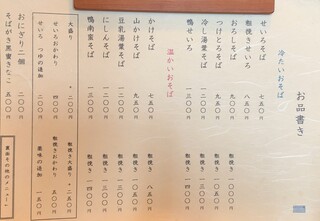 お品書き
冷たいおそば
せいろそば 七五〇円
粗挽きせいろ 八五〇円
おろしそば 九五〇円 粗挽き 一〇〇〇円
つけとろそば 九五〇円 粗挽き 一〇〇〇円
冷し湯葉そば 一二〇〇円 粗挽き 一三〇〇円
鴨せいろ 一三〇〇円 粗挽き 一四〇〇円
温かいおそば
かけそば 七五〇円 粗挽き 八五〇円
山かけそば 九五〇円 粗挽き 一〇〇〇円
豆乳湯葉そば 一二〇〇円 粗挽き 一三〇〇円
にしんそば 一二〇〇円 粗挽き 一三〇〇円
鴨南蛮そば 一三〇〇円 粗挽き 一四〇〇円
大盛り 二〇〇円 粗挽き大盛り 二五〇円
せいろおかわり 五〇〇円 粗挽きおかわり 六〇〇円
せいろ つゆの追加 二〇〇円 薬味の追加 一五〇円
おにぎり二個 三〇〇円
そばがき黒蜜きなこ 五〇〇円
裏面その他のメニュー